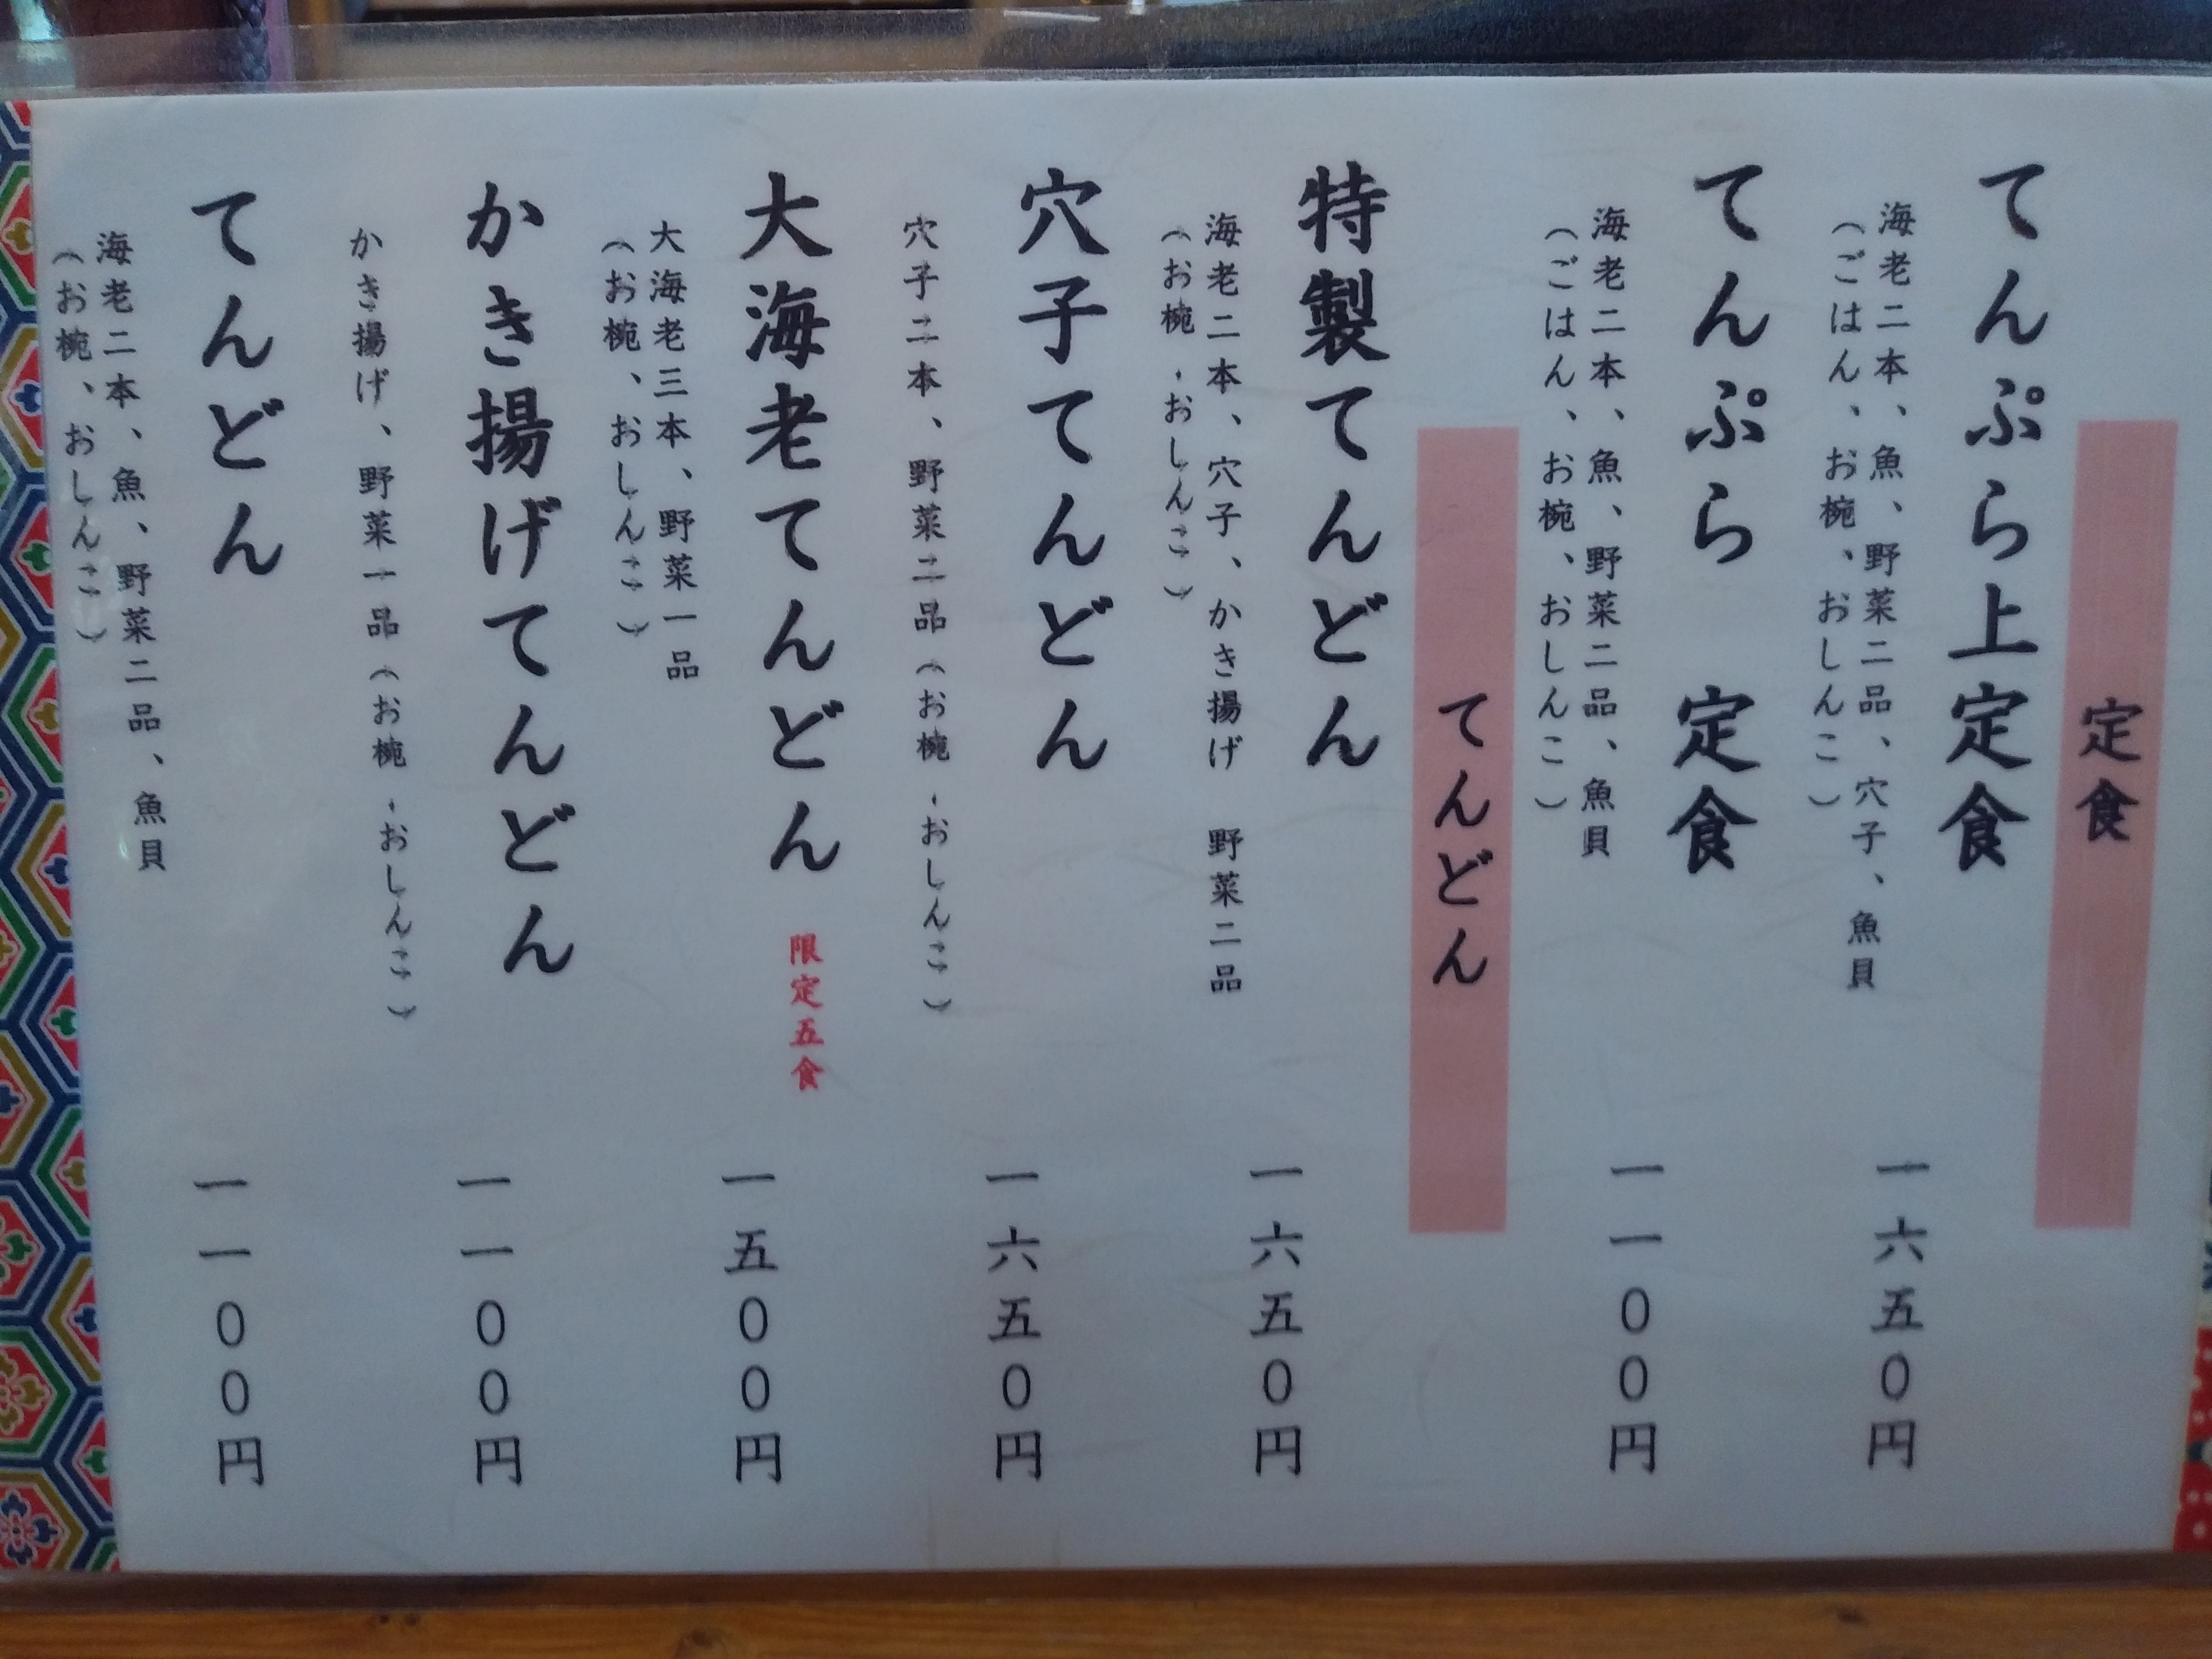 定食
てんぷら上定食
一六五０円
海老二本、魚、野菜二品、穴子、魚貝
（ごはん、お椀、おしんこ）
てんぷら　定食
一一００円
海老二本、魚、野菜二品、魚貝
（ごはん、お椀、おしんこ）
てんどん
特製てんどん
一六五０円
海老二本、穴子、かき揚げ　野菜二品
（お椀、おしんこ）
穴子てんどん
一六五０円
穴子二本、野菜二品（お椀、おしんこ）
大海老てんどん
限定五食
一五００円
大海老三本、野菜一品
（お椀、おしんこ）
かき揚げてんどん
一一００円
かき揚げ、野菜一品（お椀、おしんこ）
てんどん
一一００円
海老二本、魚、野菜二品、魚貝
（お椀、おしんこ）